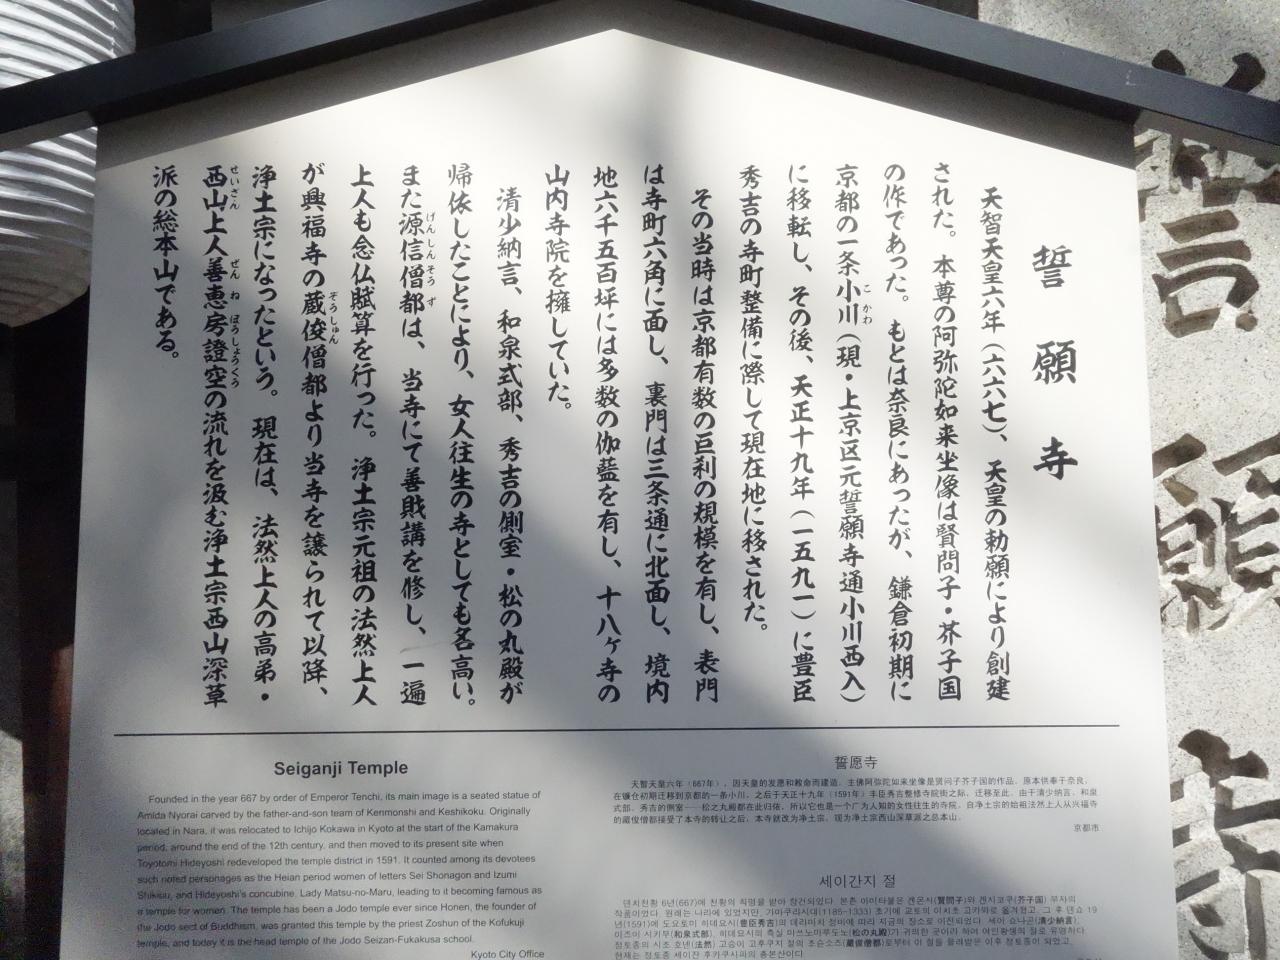 誓願寺
天智天皇六年（六六七）、天皇の勅願により創建
された。本尊の阿弥陀如来坐像は賢問子・芥子国
の作であった。もとは奈良にあったが、鎌倉初期に
京都の一条小川（現・上京区元誓願寺通小川西入）
に移転し、その後、天正十九年（一五九一）に豊臣
秀吉の寺町整備に際して現在地に移された。
その当時は京都有数の巨刹の規模を有し、表門
は寺町六角に面し、裏門は三条通に北面し、境内
地六千五百坪には多数の伽藍を有し、十八ヶ寺の
山内寺院を擁していた。
清少納言、和泉式部、秀吉の側室・松の丸殿が
帰依したことにより、女人往生の寺としても名高い。
また源信僧都は、当寺にて善財講を修し、一遍
上人も念仏賦算を行った。浄土宗元祖の法然上人
が興福寺の蔵俊僧都より当寺を譲られて以降、
浄土宗になったという。現在は、法然上人の高弟・
西山上人善恵房證空の流れを汲む浄土宗西山深草
派の総本山である。
Seiganji Temple
Founded in the year 667 by order of Emperor Tenchi, its main image is a seated statue of
Amida Nyorai carved by the father-and-son team of Kenmonshi and Keshikoku. Originally
located in Nara, it was relocated to Ichijo Kokawa in Kyoto at the start of the Kamakura
period, around the end of the 12th century, and then moved to its present site when
Toyotomi Hideyoshi redeveloped the temple district in 1591. It counted among its devotees
such noted personages as the Heian period women of letters Sei Shonagon and Izumi
Shikibu, and Hideyoshi's concubine, Lady Matsu-no-Maru, leading to it becoming famous as
a temple for women. The temple has been a Jodo temple ever since Honen, the founder of
the Jodo sect of Buddhism, was granted this temple by the priest Zoshun of the Kofukuji
temple, and today it is the head temple of the Jodo Seizan-Fukakusa school.
Kyoto City Office
誓愿寺
天智天皇六年（667年），因天皇的发愿和敕命而建造。主佛阿弥陀如来坐像是贤问子芥子国的作品，原本供奉于奈良，
在镰仓初期迁移到京都的一条小川，之后于天正十九年（1591年）丰臣秀吉整修寺院街之际，迁移至此。由于清少纳言、和泉
式部、秀吉的侧室——松之丸殿都在此归依，所以它也是一个广为人知的女性往生的寺院。自净土宗的始祖法然上人从兴福寺
的藏俊僧都接受了本寺的转让之后，本寺就改为净土宗，现为净土宗西山深草派之总本山。
京都市
세이간지 절
덴치천황 6년(667)에 천황의 칙명을 받아 창건되었다. 본존 아미타불은 켄몬시(賢問子)와 켄시코쿠(芥子国) 부자의
작품이었다. 원래는 나라에 있었지만, 가마쿠라시대(1185-1333) 초기에 교토의 이치조 고카와로 옮겨졌고, 그 후 덴쇼 19
년(1591)에 도요토미 히데요시(豊臣秀吉)의 데라마치 정비에 따라 지금의 장소로 이전되었다. 세이 쇼나곤(清少納言),
이즈미 시키부(和泉式部), 히데요시의 측실 마쓰노마루도노(松の丸殿)가 귀의한 곳이라 하여 여인왕생의 절로 유명하다.
정토종의 시조 호넨(法然) 고승이 고후쿠지 절의 조슌소즈(蔵俊僧都)로부터 이 절을 물려받은 이후 정토종이 되었고,
현재는 정토종 세이잔 후카쿠사파의 총본산이다.
誓願寺